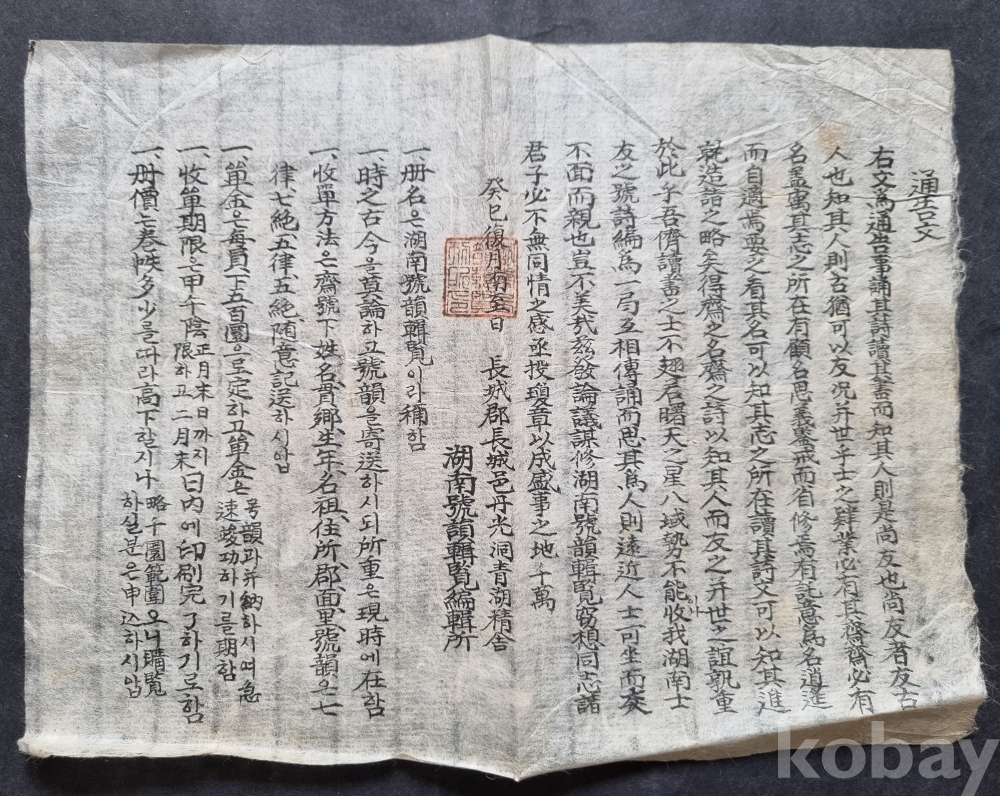 通告文
右文爲通告事誦其詩讀其書而知其人則是尚友也尚友者友古
人也知其人則古猶可以友况并世乎士之肄業必有其齋齋必有
名盖寓其志之所在有顧名思義警戒而省修焉有託意爲名逍遙
而自適焉要之看其名可以知其志之所在讀其詩文可以知其進
就造詣之略矣得齋之名齋之詩以知其人而友之并世之誼孰重
於此乎吾儕讀書之士不翅若曙天之星八域勢不能收我湖南士
友之號詩編爲一局互相傳誦而思其爲人則遠近人士可坐而友
不面而親也豈不美哉玆敢論議謀修湖南號韻輯覽窃想同志諸
君子必不無同情之感亟投瓊章以成盛事之地千萬
癸巳復月南至日 長城郡長城邑丹光洞青湖精舍
湖南號韻輯覽編輯所
一、册名은湖南號韻輯覽이라稱함
一、時之古今을莫論하고號韻을寄送하시되所重은現時에在함
一、收單方法은齋號下姓、名、貫鄉、生年、名祖、住所、郡、面、里、號韻은七
律、七絶、五律、五絶、随意記送하시압
一、單金은每員下五百圜으로定하고單金은号韻과并納하시여急速竣功하기를期함
一、收單期限은甲午陰正月末日까지限하고二月末日內에印刷完了하기로함
一、册價는卷帙多少를따라高下할지나略千圜範圍오니購覽하실분은申込하시압
kobay